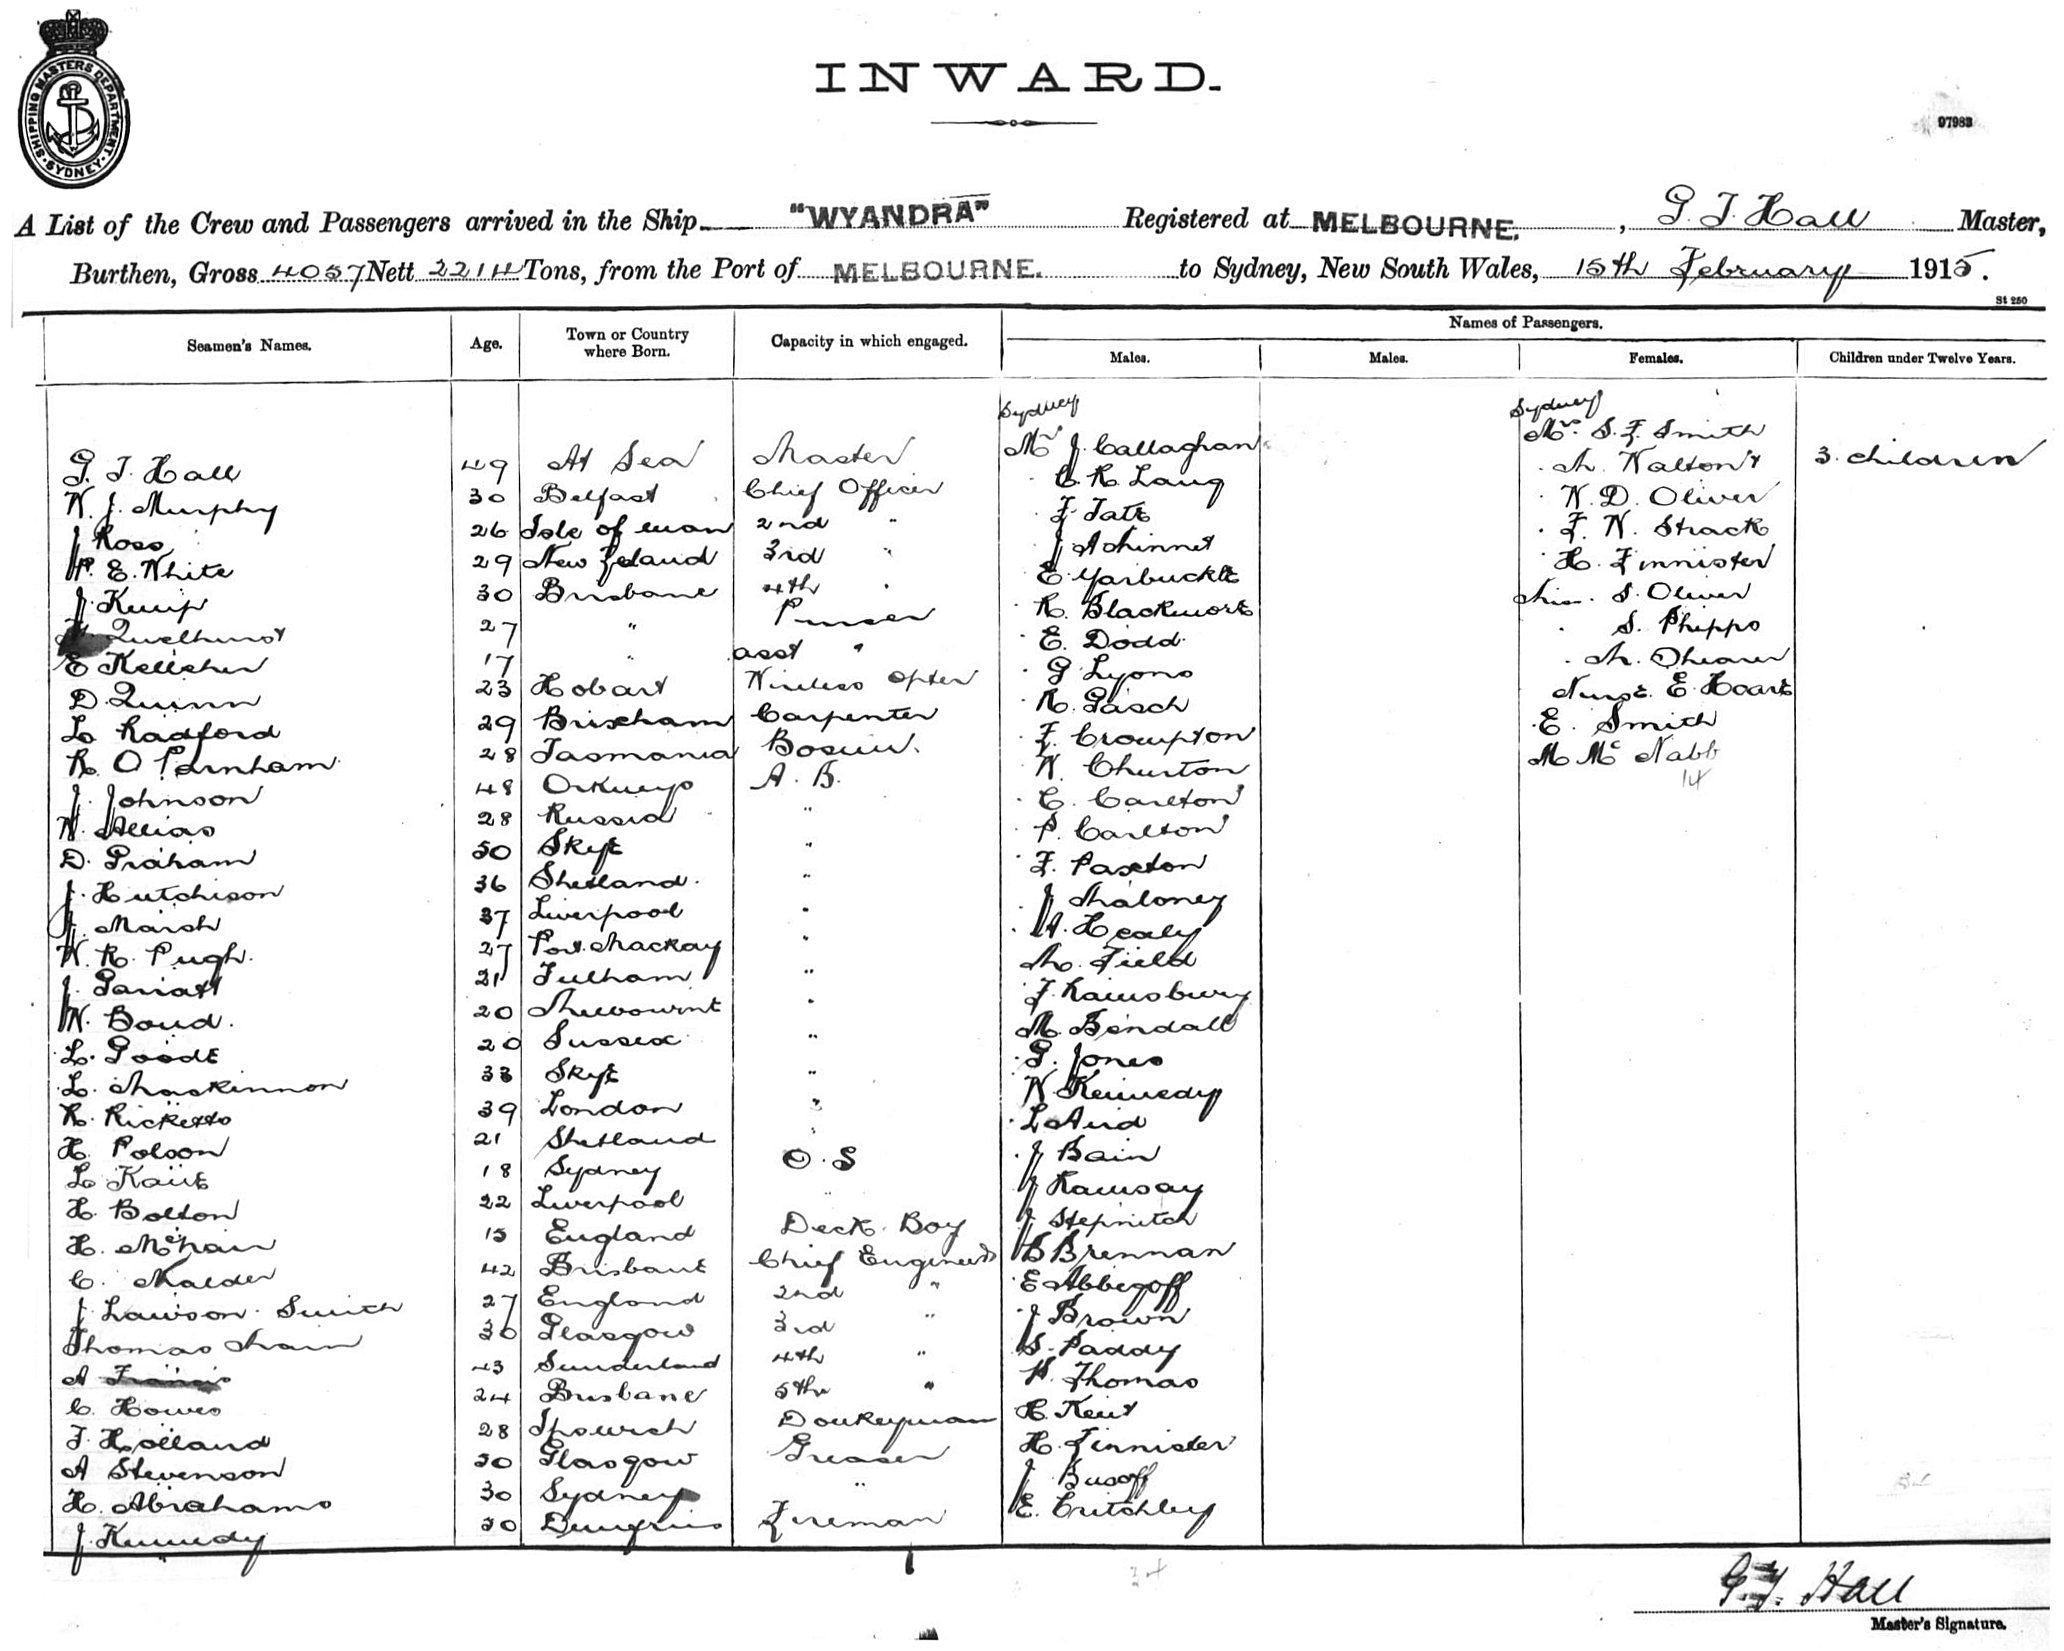 SHIPPING MASTERS DEPARTMENT. SYDNEY.
INWARD.
97983
A List of the Crew and Passengers arrived in the Ship "WYANDRA" Registered at MELBOURNE. , G. T. Hall Master,
Burthen, Gross 4057 Nett 2214 Tons, from the Port of MELBOURNE. to Sydney, New South Wales, 15th February 1915.
St 250
Seamen's Names. Age. Town or Country where Born. Capacity in which engaged. Names of Passengers.
Males. Males. Females. Children under Twelve Years.
Sydney Sydney
G. T. Hall 49 At Sea Master Mr J. Callaghan Mrs. S. F. Smith 3 children
W. J. Murphy 30 Belfast Chief Officer C. R. Lang M. Walton
J Ross 26 Isle of man 2nd " F. Tate W. D. Oliver
P. E. White 29 New Zeland 3rd " J F. W. Strack
J. Kemp 30 Brisbane 4th " E. Yarbuckle H. Finnister
Quelhurst 27 " Purser R. Blackmore Miss. S. Oliver
E Kelleher 17 " asst " E. Dodd S. Phipps
D. Quinn 23 Hobart Wireless opter G Lyons M. Shearer
L. Radford 29 Brixham Carpenter R. Pasch Nurse. E. Hoare
R. O. Parnham 28 Tasmania Bosun. F. Crompton E. Smith
J. Johnson 48 Orkneys A. B. W. Churton M Mc Nabb
W. Allias 28 Russia " C. Carlton 14
D. Graham 50 Skye " P. Carlton
J. Hutchison 36 Shetland. " F. Paxton
J. Marsh 37 Liverpool " J Maloney
W. R. Pugh. 27 Port Mackay " A. Healy
J. Gariatt 21 Fulham " M. Field
W. Boud. 20 " F. Ramsbury
L. Goode 20 Sussex " M. Bendall
L. Maskinnon 33 Skye " G. Jones
R. Ricketts 39 London " W. Kennedy
H. Polson 21 Shetland " L Aird
L Kaine 18 Sydney O. S J Bain
H. Bolton 22 Liverpool " J Ramsay
H. McNair 15 England Deck Boy J Stepnitch
C. Malder 42 Brisbane Chief Engineer B Brennan
J Lawson. Smith 27 England 2nd " E Abbegoff
Thomas Main 30 Glasgow 3rd " J Brown
A Francis 43 Sunderland 4th " S. Paddy
C. Howes 24 Brisbane 5th " W. Thomas
J. Holland 28 Ipswich Donkeyman H. Kent
A Stevenson 30 Glasgow Greaser H. Finnister
H. Abrahams 30 Sydney " J Busoff
J. Kennedy 30 Dumfries Fireman E. Critchley
34
G. T. Hall
Master's Signature.